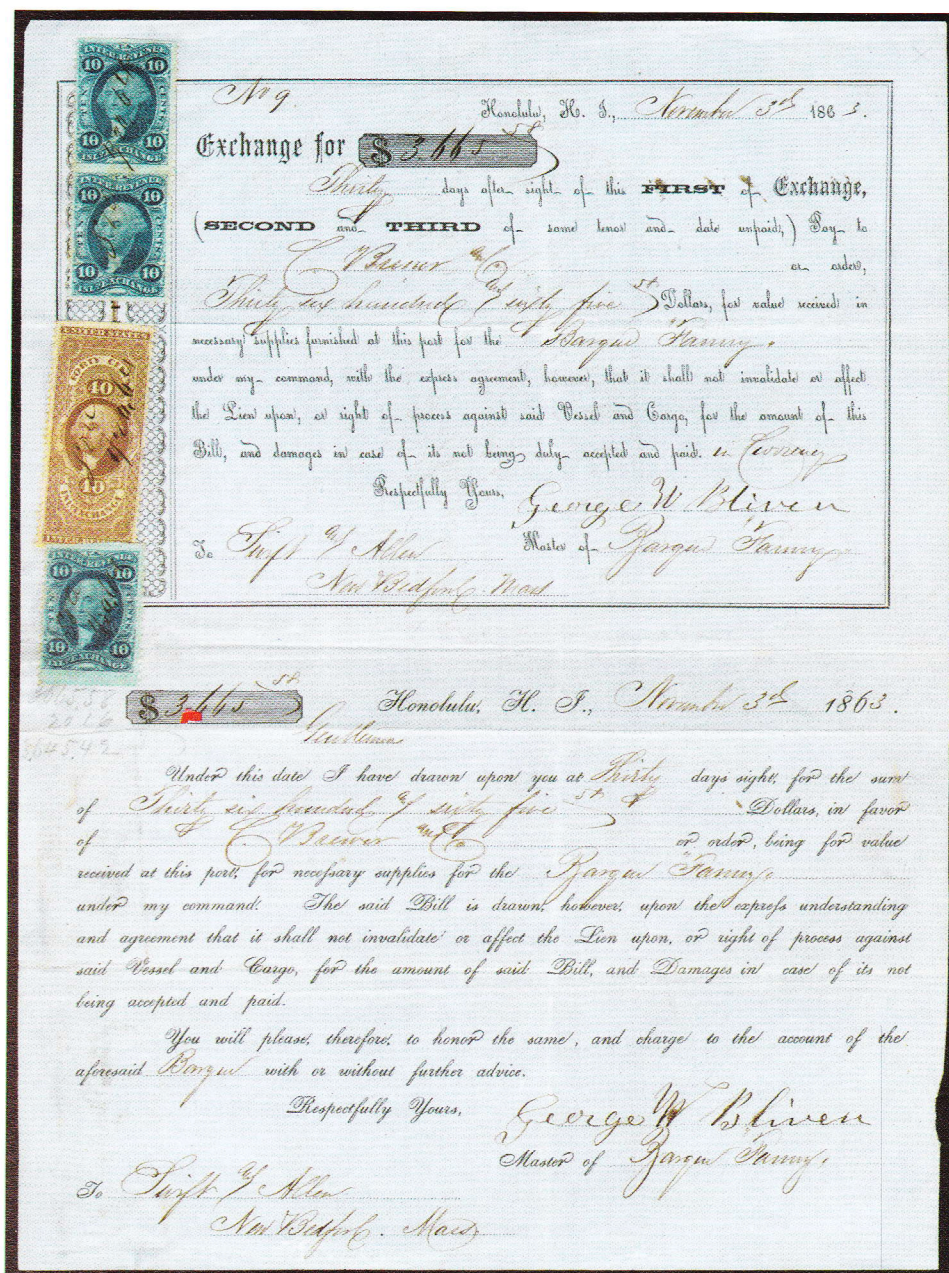 No 9
Honolulu, H. I., November 3d 1863.
Exchange for $ 3665 58
Thirty days after sight of this FIRST of Exchange,
(SECOND and THIRD of same tenor and date unpaid,) Pay to
C Brewer & Co or order,
Thirty six hundred & sixty five 58 Dollars, for value received in
necessary supplies furnished at this port for the Barque "Fanny"
under my command, with the express agreement, however, that it shall not invalidate or affect
the Lien upon, or right of process against said Vessel and Cargo, for the amount of this
Bill, and damages in case of its not being duly accepted and paid. in Currency
Respectfully Yours,
George W Bliven
To Swift & Allen Master of Barque "Fanny"
New Bedford. Mass
INTER. REVENUE
10 10
TEN CENTS
10 10
INL. EXCHANGE
INTER. REVENUE
10 10
TEN CENTS
10 10
INL. EXCHANGE
UNITED STATES
FORTY CTS
40
40
INL. EXCHANGE
INTER. REVENUE
10 10
TEN CENTS
10 10
INL. EXCHANGE
3665.58
20 16
3645.42
$ 3665 58 Honolulu, H. I., November 3d 1863.
Gentlemen
Under this date I have drawn upon you at Thirty days sight, for the sum
of Thirty six hundred & sixty five 58 Dollars, in favor
of C Brewer & Co or order, being for value
received at this port, for necessary supplies for the Barque "Fanny"
under my command. The said Bill is drawn, however, upon the express understanding
and agreement that it shall not invalidate or affect the Lien upon, or right of process against
said Vessel and Cargo, for the amount of said Bill, and Damages in case of its not
being accepted and paid.
You will please, therefore, to honor the same, and charge to the account of the
aforesaid Barque with or without further advice.
Respectfully Yours,
George W Bliven
Master of Barque Fanny.
To Swift & Allen
New Bedford. Mass